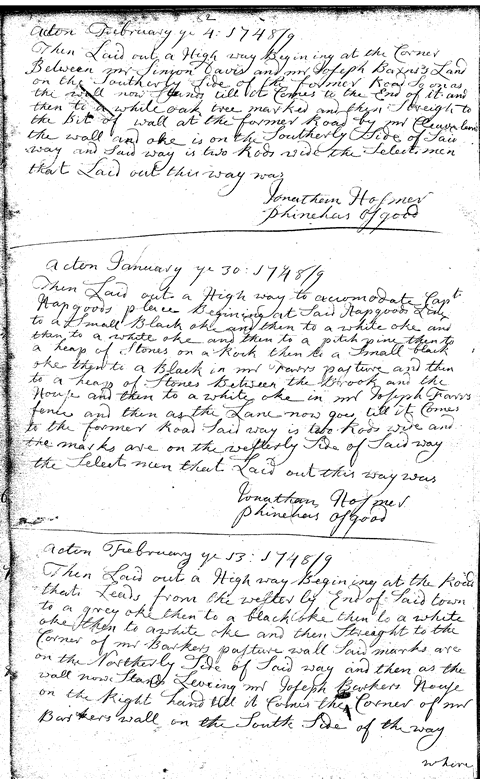 82
Acton February ye 4: 1748/9
Then Laid out a High way Begining at the Corner
Between mr Simon Davis and mr Joseph Baxter's Land
on the Southerly Side of the former Road so on as
the wall now Stands till it Comes to the End of it: and
then to a white oak tree marked and then Streight to
the Bit of wall at the former Road by mr Cleaveland
the wall and oke is on the Southerly Side of Said
way and Said way is two Rods wide the Select men
that Laid out this way was
Jonathan Hosmer
Phinehas osgood
Acton January ye 30: 1748/9
Then Laid out a High way to acomodate Capt
Hapgoods place Begining at Said Hapgoods Line
to a Small Black oke and then to a white oke and
then to a white oke and then to a pitch pine then to
a heap of Stones on a Rock then to a Small black
oke then to a Black in mr Farrs pasture and then
to a heap of Stones Between the Brook and the
House and then to a white oke in mr Joseph Farrs
fence and then as the Lane now goes till it Comes
to the former Road Said way is two Rods wide and
the marks are on the westerly Side of Said way
the Select men that Laid out this way was
Jonathan Hosmer
Phinehas osgood
Acton February ye 13: 1748/9
Then Laid out a High way Begining at the Road
that Leads from the westerly End of Said town
to a grey oke then to a black oke then to a white
oke then to a white oke and then Streight to the
Corner of mr Barkers pasture wall Said marks are
on the Northerly Side of Said way and then as the
wall now Stands Leveing mr Joseph Barkers House
on the Right hand till it Comes the Corner of mr
Barkers wall on the South Side of the way
where